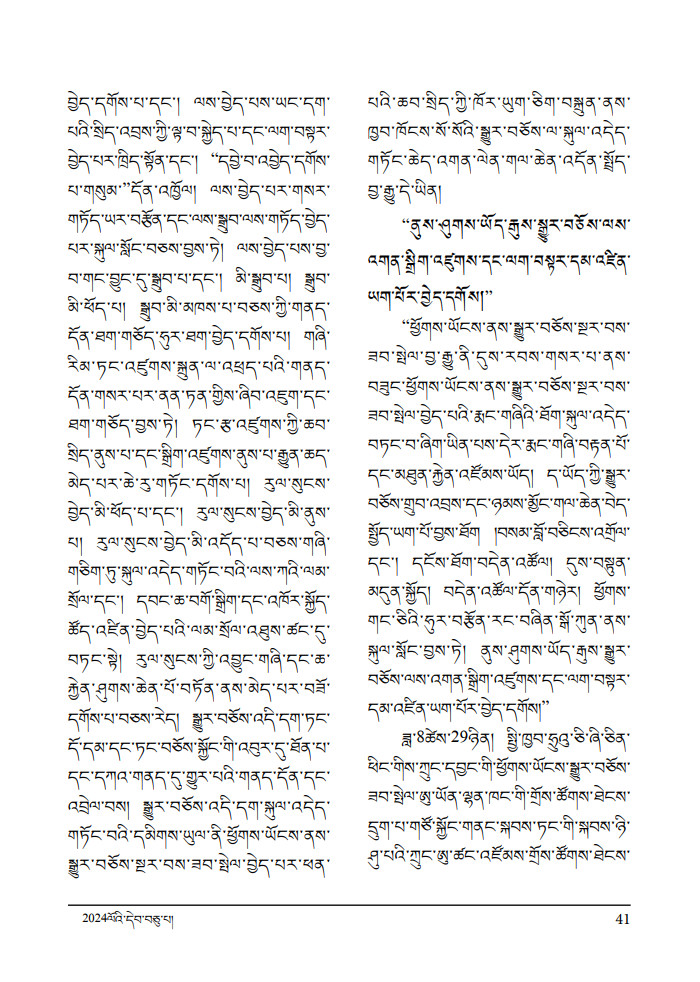 བྱེད་དགོས་པ་དང་། ལས་བྱེད་པས་ཡང་དག་
པའི་སྲིད་འབྲས་ཀྱི་ལྟ་བ་སྐྱེད་པ་དང་ལག་བསྟར་
བྱེད་པར་ཁྲིད་སྟོན་དང་། “དབྱེ་བ་འབྱེད་དགོས་
པ་གསུམ་”དོན་འཁྱོལ། ལས་བྱེད་པར་གསར་
གཏོད་ཡར་བརྩོན་དང་ལས་སྒྲུབ་ལས་གཏོད་བྱེད་
པར་སྐུལ་སློང་བཅས་བྱས་ཏེ། ལས་བྱེད་པས་བྱ་
བ་གང་བྱུང་དུ་སྒྲུབ་པ་དང་། མི་སྒྲུབ་པ། སྒྲུབ་
མི་ཕོད་པ། སྒྲུབ་མི་མཁས་པ་བཅས་ཀྱི་གནད་
དོན་ཐག་གཅོད་ཧུར་ཐག་བྱེད་དགོས་པ། གཞི་
རིམ་ཏང་འཛུགས་སྐྲུན་ལ་འཕྲད་པའི་གནད་
དོན་གསར་པར་ནན་ཏན་གྱིས་ཞིབ་འཇུག་དང་
ཐག་གཅོད་བྱས་ཏེ། ཏང་རྩ་འཛུགས་ཀྱི་ཆབ་
སྲིད་ནུས་པ་དང་སྒྲིག་འཛུགས་ནུས་པ་རྒྱུན་ཆད་
མེད་པར་ཆེ་རུ་གཏོང་དགོས་པ། རུལ་སུངས་
བྱེད་མི་ཕོད་པ་དང་། རུལ་སུངས་བྱེད་མི་ནུས་
པ། རུལ་སུངས་བྱེད་མི་འདོད་པ་བཅས་གཞི་
གཅིག་ཏུ་སྐུལ་འདེད་གཏོང་བའི་ལས་ཀའི་ལམ་
སྲོལ་དང་། དབང་ཆ་བགོ་སྒྲིག་དང་འཁོར་སྐྱོད་
ཚོད་འཛིན་བྱེད་པའི་ལམ་སྲོལ་འཐུས་ཚང་དུ་
བཏང་སྟེ། རུལ་སུངས་ཀྱི་འབྱུང་གཞི་དང་ཆ་
རྐྱེན་ཤུགས་ཆེན་པོ་བཏོན་ནས་མེད་པར་བཟོ་
དགོས་པ་བཅས་རེད། སྒྱུར་བཅོས་འདི་དག་ཏང་
དོ་དམ་དང་ཏང་བཅོས་སྐྱོང་གི་འབུར་དུ་ཐོན་པ་
དང་དཀའ་གནད་དུ་གྱུར་པའི་གནད་དོན་དང་
འབྲེལ་བས། སྒྱུར་བཅོས་འདི་དག་སྐུལ་འདེད་
གཏོང་བའི་དམིགས་ཡུལ་ནི་ཕྱོགས་ཡོངས་ནས་
སྒྱུར་བཅོས་སྔར་བས་ཟབ་སྤེལ་བྱེད་པར་ཕན་
པའི་ཆབ་སྲིད་ཀྱི་ཁོར་ཡུག་ཅིག་བསྐྲུན་ནས་
ཁྱབ་ཁོངས་སོ་སོའི་སྒྱུར་བཅོས་ལ་སྐུལ་འདེད་
གཏོང་ཆེད་འགན་ལེན་གལ་ཆེན་འདོན་སྤྲོད་
བྱ་རྒྱུ་དེ་ཡིན།
“ནུས་ཤུགས་ཡོད་རྒུས་སྒྱུར་བཅོས་ལས་
འགན་སྒྲིག་འཛུགས་དང་ལག་བསྟར་དམ་འཛིན་
ཡག་པོར་བྱེད་དགོས།”
“ཕྱོགས་ཡོངས་ནས་སྒྱུར་བཅོས་སྔར་བས་
ཟབ་སྤེལ་བྱ་རྒྱུ་ནི་དུས་རབས་གསར་པ་ནས་
བཟུང་ཕྱོགས་ཡོངས་ནས་སྒྱུར་བཅོས་སྔར་བས་
ཟབ་སྤེལ་བྱེད་པའི་རྨང་གཞིའི་ཐོག་སྐུལ་འདེད་
བཏང་བ་ཞིག་ཡིན་པས་དེར་རྨང་གཞི་བརྟན་པོ་
དང་མཐུན་རྐྱེན་འཛོམས་ཡོད། ད་ཡོད་ཀྱི་སྒྱུར་
བཅོས་གྲུབ་འབྲས་དང་ཉམས་མྱོང་གལ་ཆེན་བེད་
སྤྱོད་ཡག་པོ་བྱས་ཐོག །བསམ་བློ་བཅིངས་འགྲོལ་
དང་། དངོས་ཐོག་བདེན་འཚོལ། དུས་བསྟུན་
མདུན་སྐྱོད། བདེན་འཚོལ་དོན་གཉེར། ཕྱོགས་
གང་ཅིའི་ཧུར་བརྩོན་རང་བཞིན་སྒོ་ཀུན་ནས་
སྐུལ་སློང་བྱས་ཏེ། ནུས་ཤུགས་ཡོད་རྒུས་སྒྱུར་
བཅོས་ལས་འགན་སྒྲིག་འཛུགས་དང་ལག་བསྟར་
དམ་འཛིན་ཡག་པོར་བྱེད་དགོས།”
ཟླ་8ཚེས་29ཉིན། སྤྱི་ཁྱབ་ཧྲུའུ་ཅི་ཞི་ཅིན་
ཕིང་གིས་ཀྲུང་དབྱང་གི་ཕྱོགས་ཡོངས་སྒྱུར་བཅོས་
ཟབ་སྤེལ་ཨུ་ཡོན་ལྷན་ཁང་གི་གྲོས་ཚོགས་ཐེངས་
དྲུག་པ་གཙོ་སྐྱོང་གནང་སྐབས་ཏང་གི་སྐབས་ཉི་
ཤུ་པའི་ཀྲུང་ཨུ་ཚང་འཛོམས་གྲོས་ཚོགས་ཐེངས་
2024ལོའི་དེབ་བཅུ་པ།
41